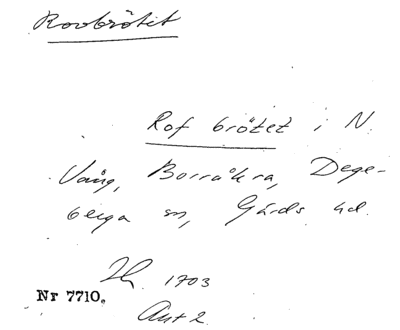 Rovbrötet
Rof brötet i N.
Vång, Borråkra, Dege-
berga sn, Gärds hd.
Lh. 1703
Nr 7710.
Akt 2